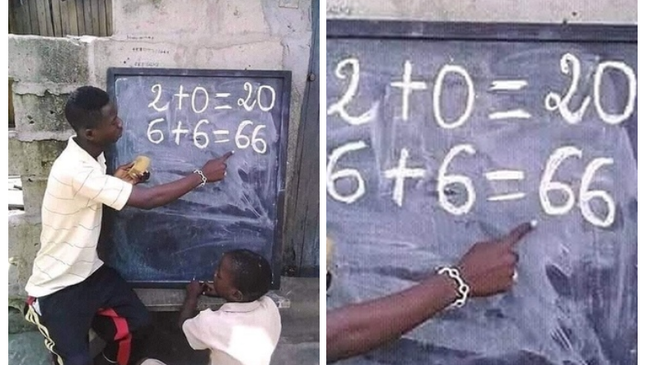 2+0=20
6+6=66
2+0=20
6+6=66